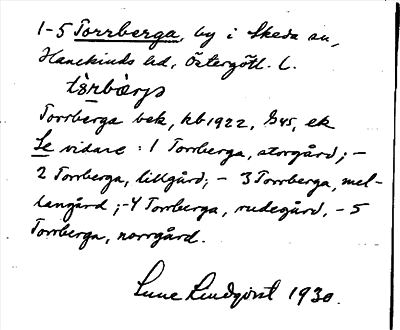 1-5 Torrberga, by i Skeda sn,
Hanekinds hd, Östergötl. l.
tòrbærja
Torrberga bek, kb 1922, G45, ek
Se vidare : 1 Torrberga, storgård; -
2 Torrberga, lillgård; - 3 Torrberga, mel-
langård; - 4 Torrberga, rudegård, - 5
Torrberga, norrgård.
Sune Lindqvist 1930.